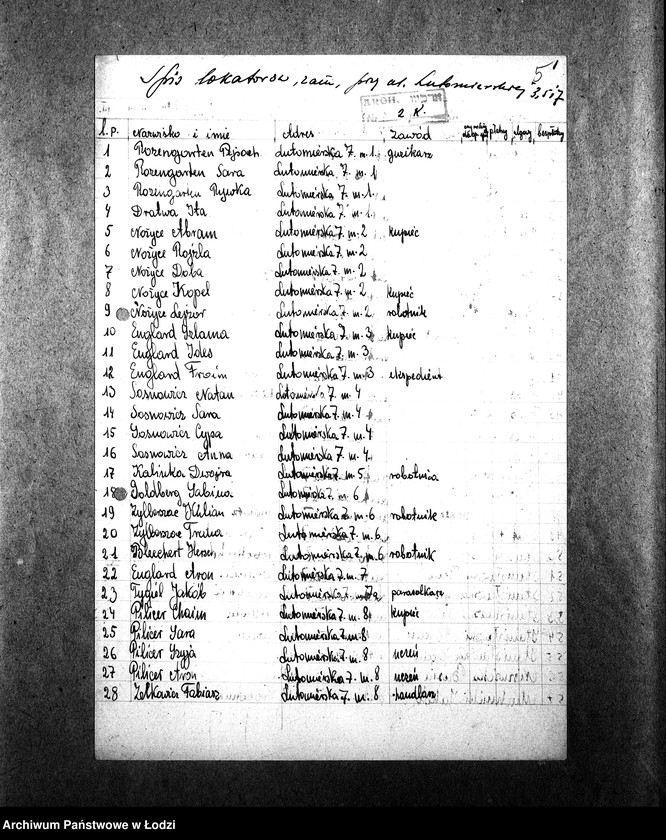 Spis lokatorów, zam. przy ul. Lutomierskiej
3, 5 i 7
5
ARCH.
2 K.
L.p. Nazwisko i imię Adres Zawód bezpłatny
1 Rozengarten Pejsach Lutomierska 7. m. 1. guzikarz
2 Rozengarten Sara Lutomierska 7. m. 1
3 Rozengarten Rywka Lutomierska 7. m. 1.
4 Dratwa Ita Lutomierska 7. m. 1.
5 Nożyce Abram Lutomierska 7. m. 2 kupiec
6 Nożyce Rojzla Lutomierska 7. m. 2
7 Nożyce Doba Lutomierska 7. m. 2
8 Nożyce Kopel Lutomierska 7. m. 2 kupiec
9 Nożyce Lejzor Lutomierska 7. m. 2. robotnik
10 Englard Szlama Lutomierska 7. m. 3 kupiec
11 Englard Ides Lutomierska 7. m. 3
12 Englard Froim Lutomierska 7. m. 3 ekspedient
13 Sosnowicz Natan Lutomierska 7. m. 4
14 Sosnowicz Sara Lutomierska 7. m. 4
15 Sosnowicz Cypa Lutomierska 7. m. 4
16 Sosnowicz Anna Lutomierska 7. m. 4.
17 Kalinka Dwojra Lutomierska 7. m. 5. robotnica
18 Goldberg Sabina Lutomierska 7. m. 6
19 Zylberszac Chilian Lutomierska 7. m. 6 robotnik
20 Zylberszac Fruma Lutomierska 7. m. 6.
21 Bleechert Hersch Lutomierska 7. m. 6 robotnik
22 Englard Aron Lutomierska 7. m. 7
23 Fygiel Jakób Lutomierska 7. m. parasolkarz
24 Pilicer Chaim Lutomierska 7. m. 8 kupiec
25 Pilicer Sara Lutomierska 7. m. 8
26 Pilicer Szyja Lutomierska 7. m. 8 uczeń
27 Pilicer Aron Lutomierska 7. m. 8 uczeń
28 Zelkowicz Fabiasz Lutomierska 7. m. 8 handlarz
Archiwum Państwowe w Łodzi